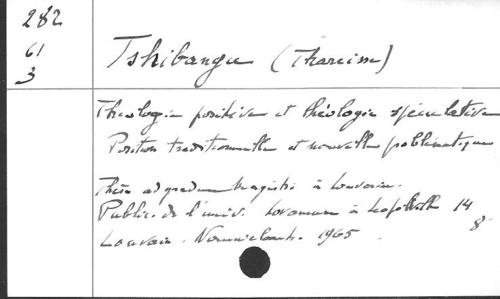 282
61
3
Tshibangu (Tharcisse)
Théologie positive et théologie spéculative
Position traditionnelle et nouvelle problématique
Thèse ad gradum Magistri in Louvain.
Public. de l'univ. Lovanium à Léopoldville 14
8°
Louvain. Nauwelaerts. 1965.